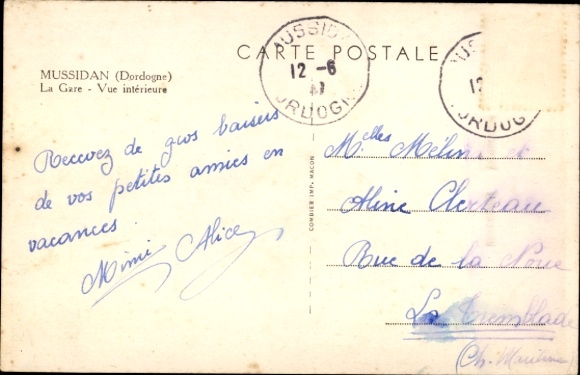 CARTE POSTALE
MUSSIDAN (Dordogne)
La Gare - Vue intérieure
MUSSIDA
12 -6
DORDOGN
12
DORDOG
Recevez de gros baisers
de vos petites amies en
vacances.
Mimi Alice
COMBIER IMP. MACON
Melles Méline et
Aline Clerteau
Rue de la Noue
La Tremblade
(Ch. Maritime)